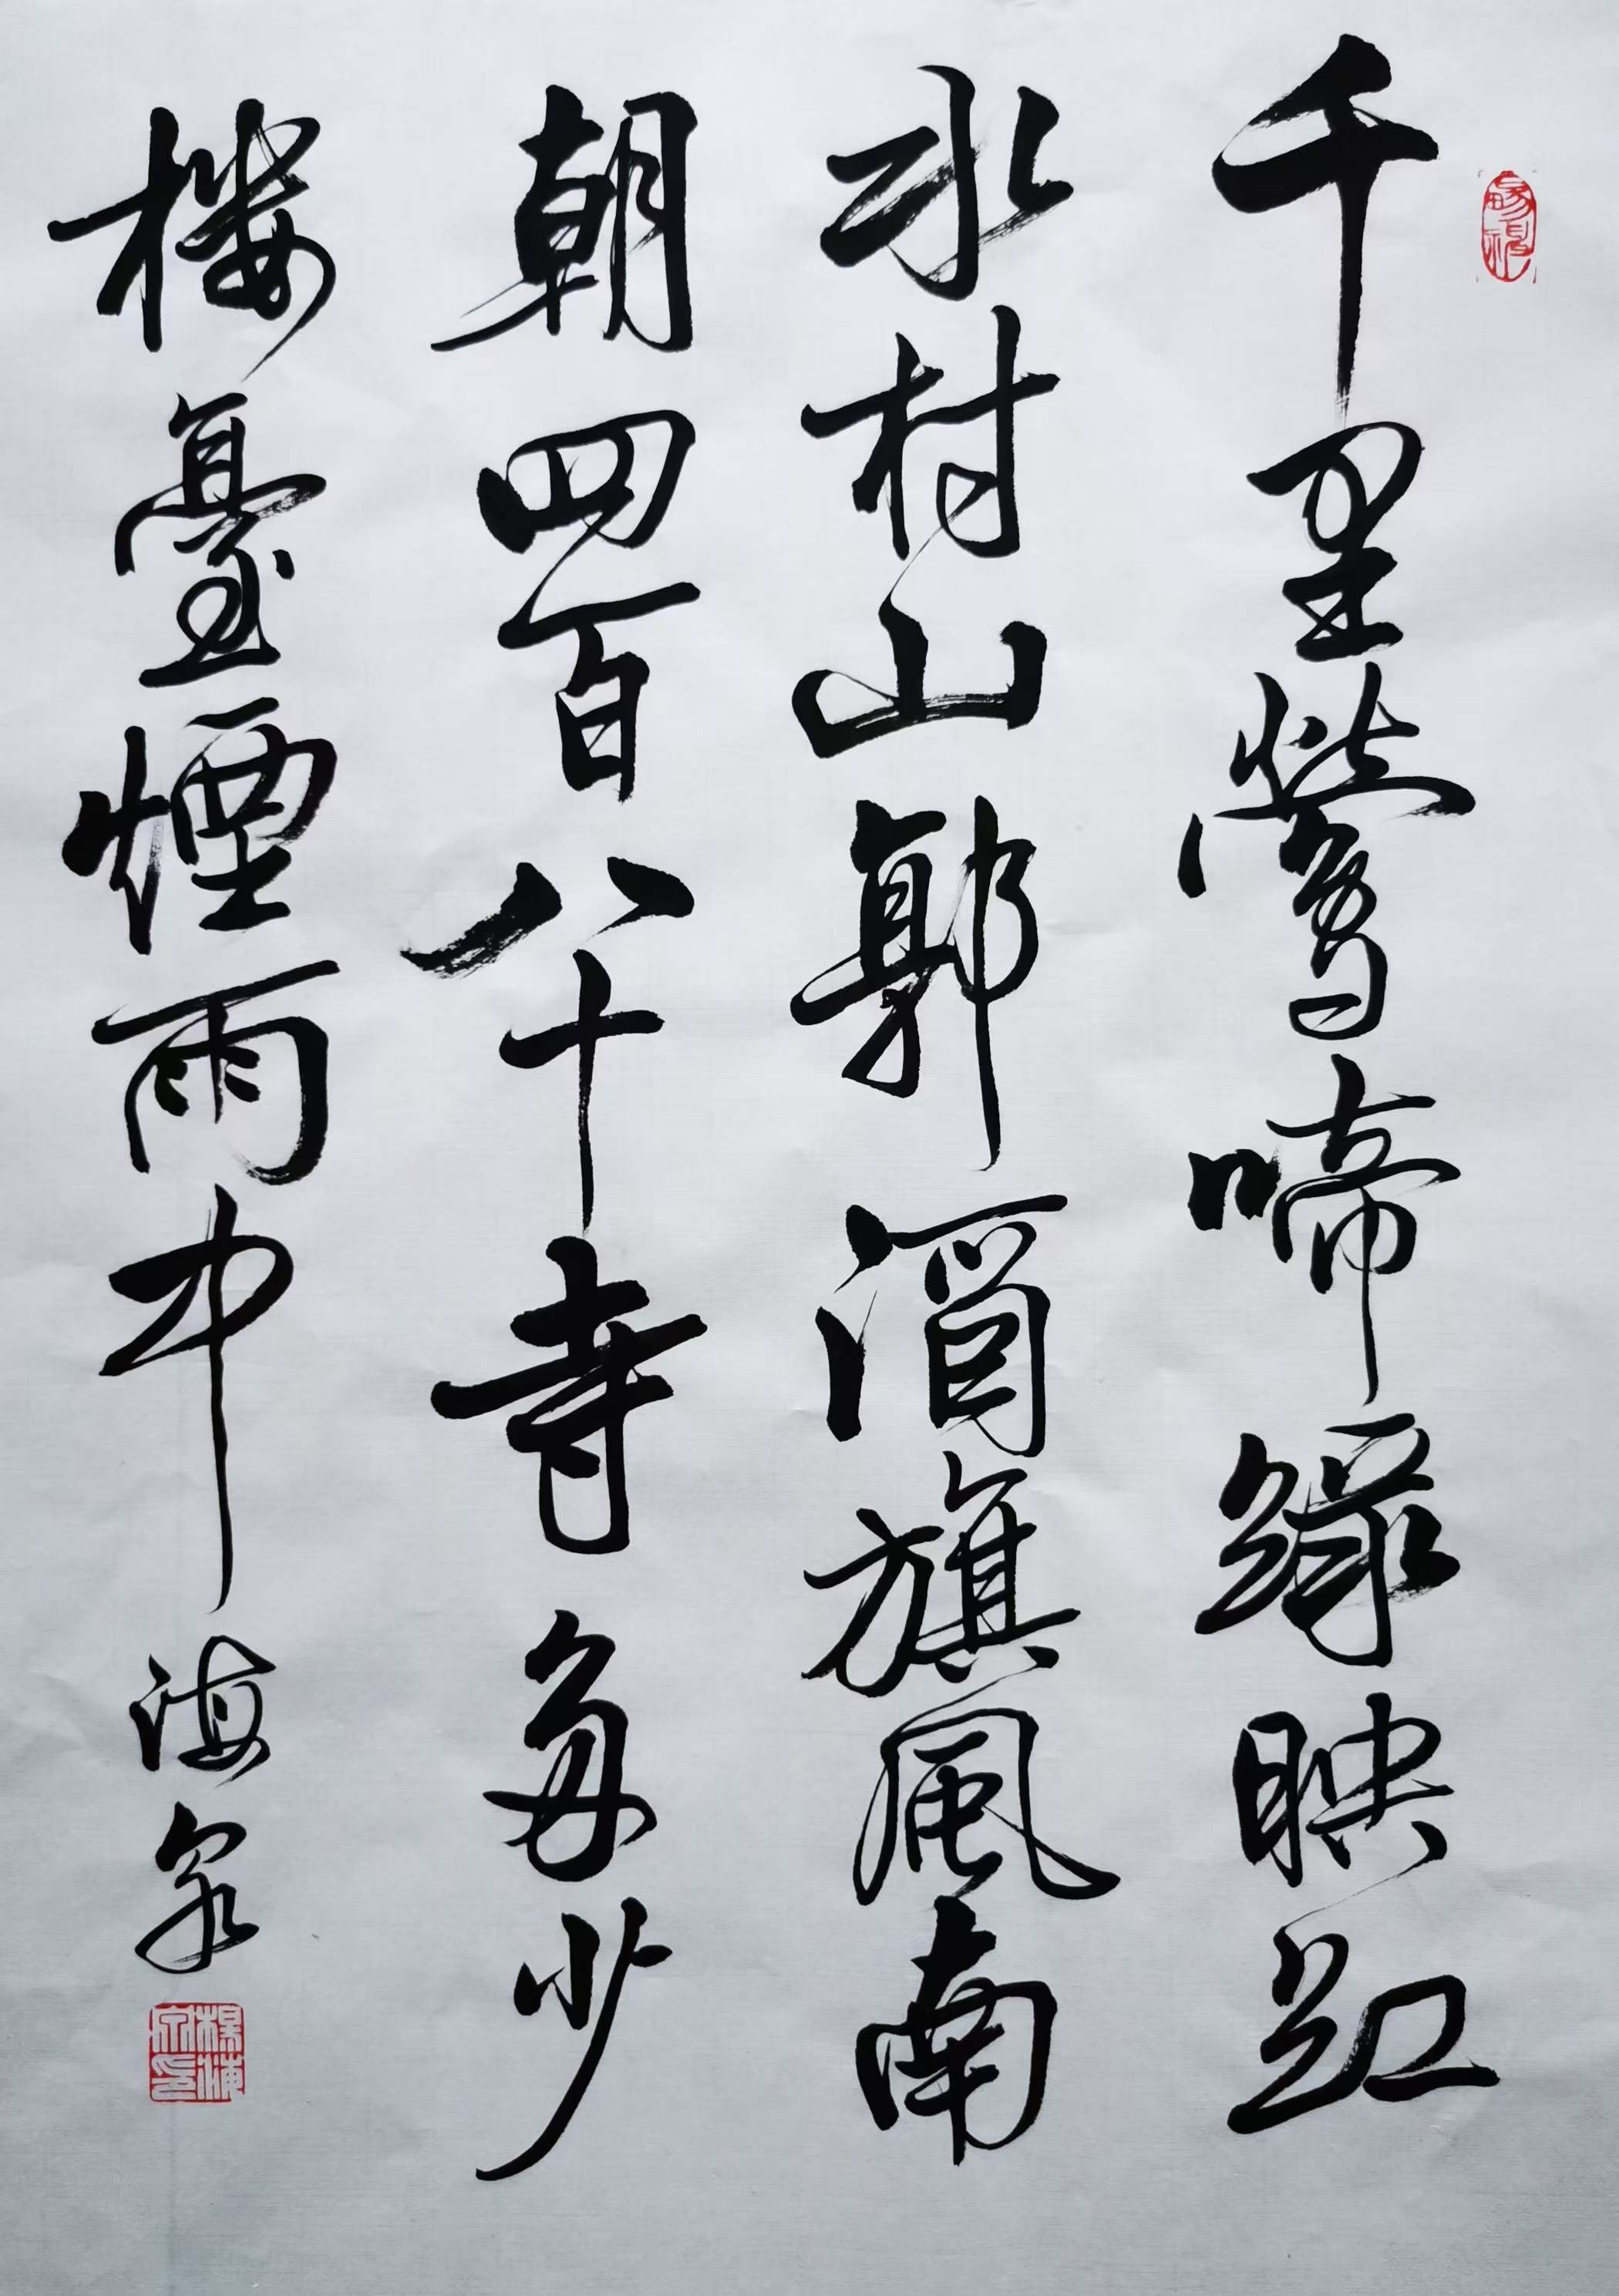 千里鶯啼綠映紅
水村山郭酒旗風南
朝四百八十寺多少
樓臺煙雨中海泉